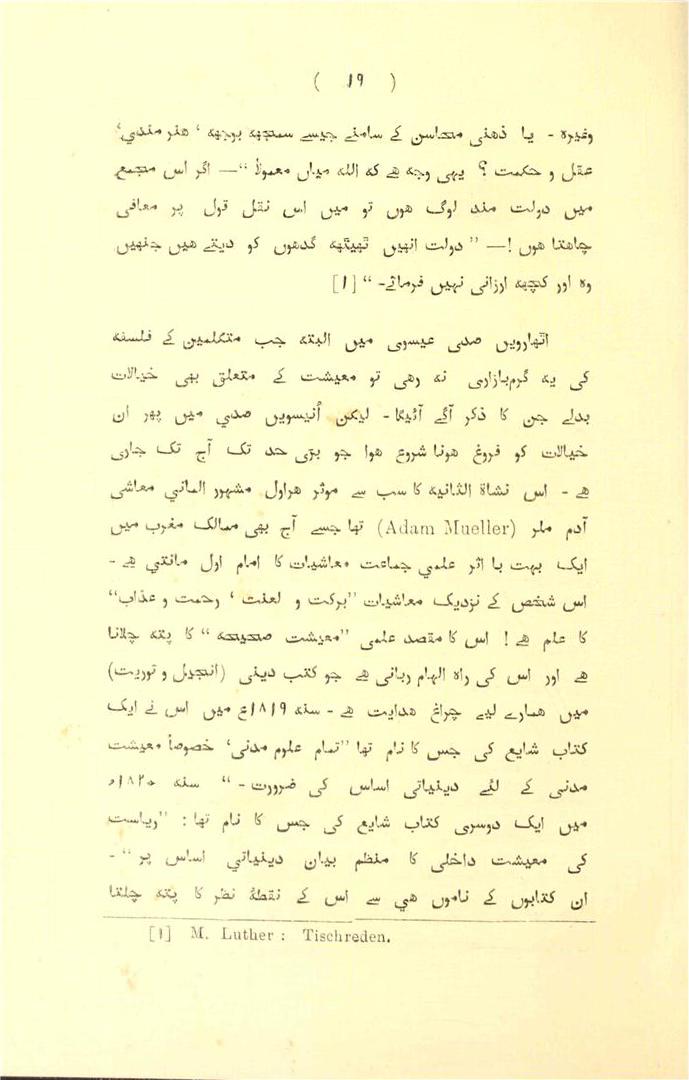 ( ۱۹ )
وغیرہ - یا ذهنی محاسن کے سامنے جیسے سمجھہ بوجھہ ' هنر مندي'
عقل و حکمت ؟ یہی وجہ هے کہ اللہ میاں معمولاً “— اگر اس مجمع
میں دولت مند لوگ هوں تو میں اس نقل قول پر معافی
چاهتا هوں !— ” دولت انهیں ٹھیٹھہ گدهوں کو دیتے هیں جنهیں
وہ اور کچھہ ارزانی نہیں فرماتے- “ [۱]
اٹھارویں صدی عیسوی میں البتہ جب متکلمین کے فلسفہ
کی یہ گرم‌بازاری نہ رهی تو معیشت کے متعلق بھی خیالات
بدلے جن کا ذکر آگے آئیگا - لیکن اُنیسویں صدي میں پھر ان
خیالات کو فروغ هونا شروع هوا جو بڑی حد تک آج تک جاری
هے - اس نشاۃ الثانیہ کا سب سے موثر هراول مشہور الماني معاشی
آدم ملر (Adam Mueller) تھا جسے آج بھی ممالک مغرب میں
ایک بہت با اثر علمي جماعت معاشیات کا امام اول مانتي هے -
اس شخص کے نزدیک معاشیات ”برکت و لعنت ' رحمت و عذاب“
کا علم هے ! اس کا مقصد علمی ”معیشت صحیحہ “ کا پتہ چلانا
هے اور اس کی راہ الہام ربانی هے جو کتب دینی (انجیل و توریت)
میں همارے لیے چراغ هدایت هے - سنہ ۱۸۱۹ع میں اس نے ایک
کتاب شایع کی جس کا نام تھا ”تمام علوم مدنی' خصوصاً معیشت
مدنی کے لئے دینیاتی اساس کی ضرورت - “ سنہ ۱۸۲۰ء
میں ایک دوسری کتاب شایع کی جس کا نام تھا : ”ریاست
کی معیشت داخلی کا منظم بیان دینیاتي اساس پر “ -
ان کتابوں کے ناموں هي سے اس کے نقطۂ نظر کا پتہ چلتا
[۱] M. Luther : Tischreden.